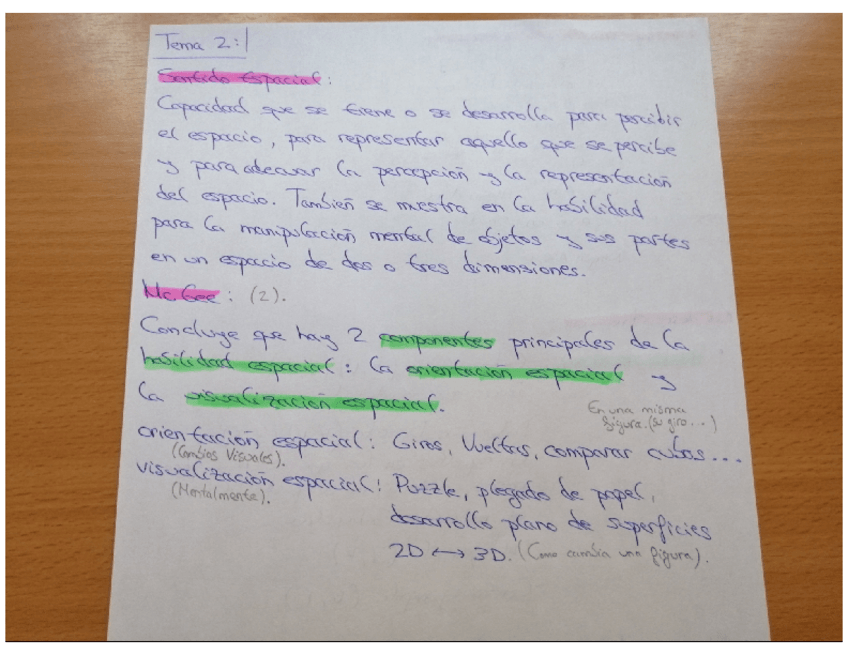 Tema 2:|
Sentido Espacial:
Capacidad que se tiene o se desarrolla para percibir
el espacio, para representar aquello que se percibe
y para adecuar la percepción y la representación
del espacio. También se muestra en la habilidad
para la manipulación mental de objetos y sus partes
en un espacio de dos o tres dimensiones.
McGee: (2).
Concluye que hay 2 componentes principales de la
habilidad espacial: la orientación espacial y
la visualización espacial.
En una misma
figura. (su giro...)
orientación espacial: Giros, Vueltas, comparar cubos...
(Cambios Visuales).
visualización espacial: Puzzle, plegado de papel,
(Mentalmente).
desarrollo plano de superficies
2D ↔ 3D. (Como cambia una figura).